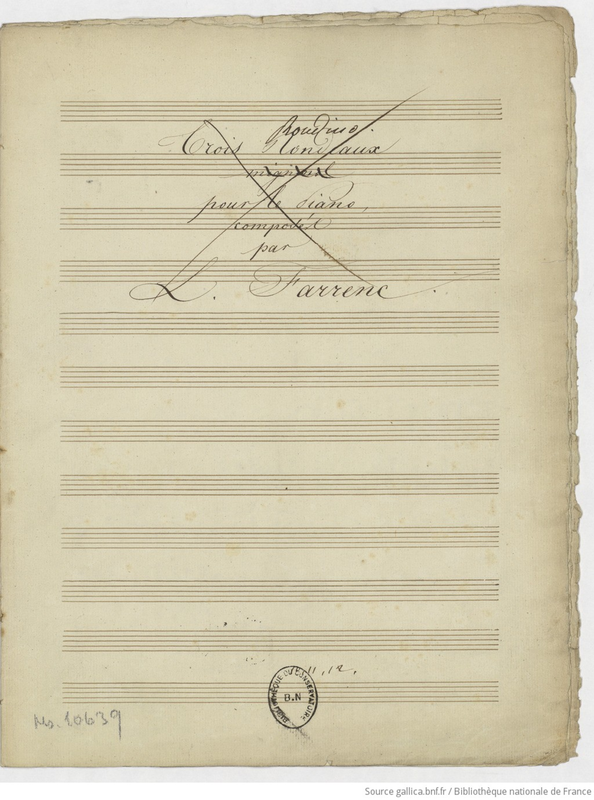 Rondino.
Trois Rondeaux
mignons
pour le Piano,
composés
par
L. Farrenc.
11, 12.
BIBLIOTHÈQUE DU CONSERVATOIRE
B.N
Ms. 10639
Source gallica.bnf.fr / Bibliothèque nationale de France